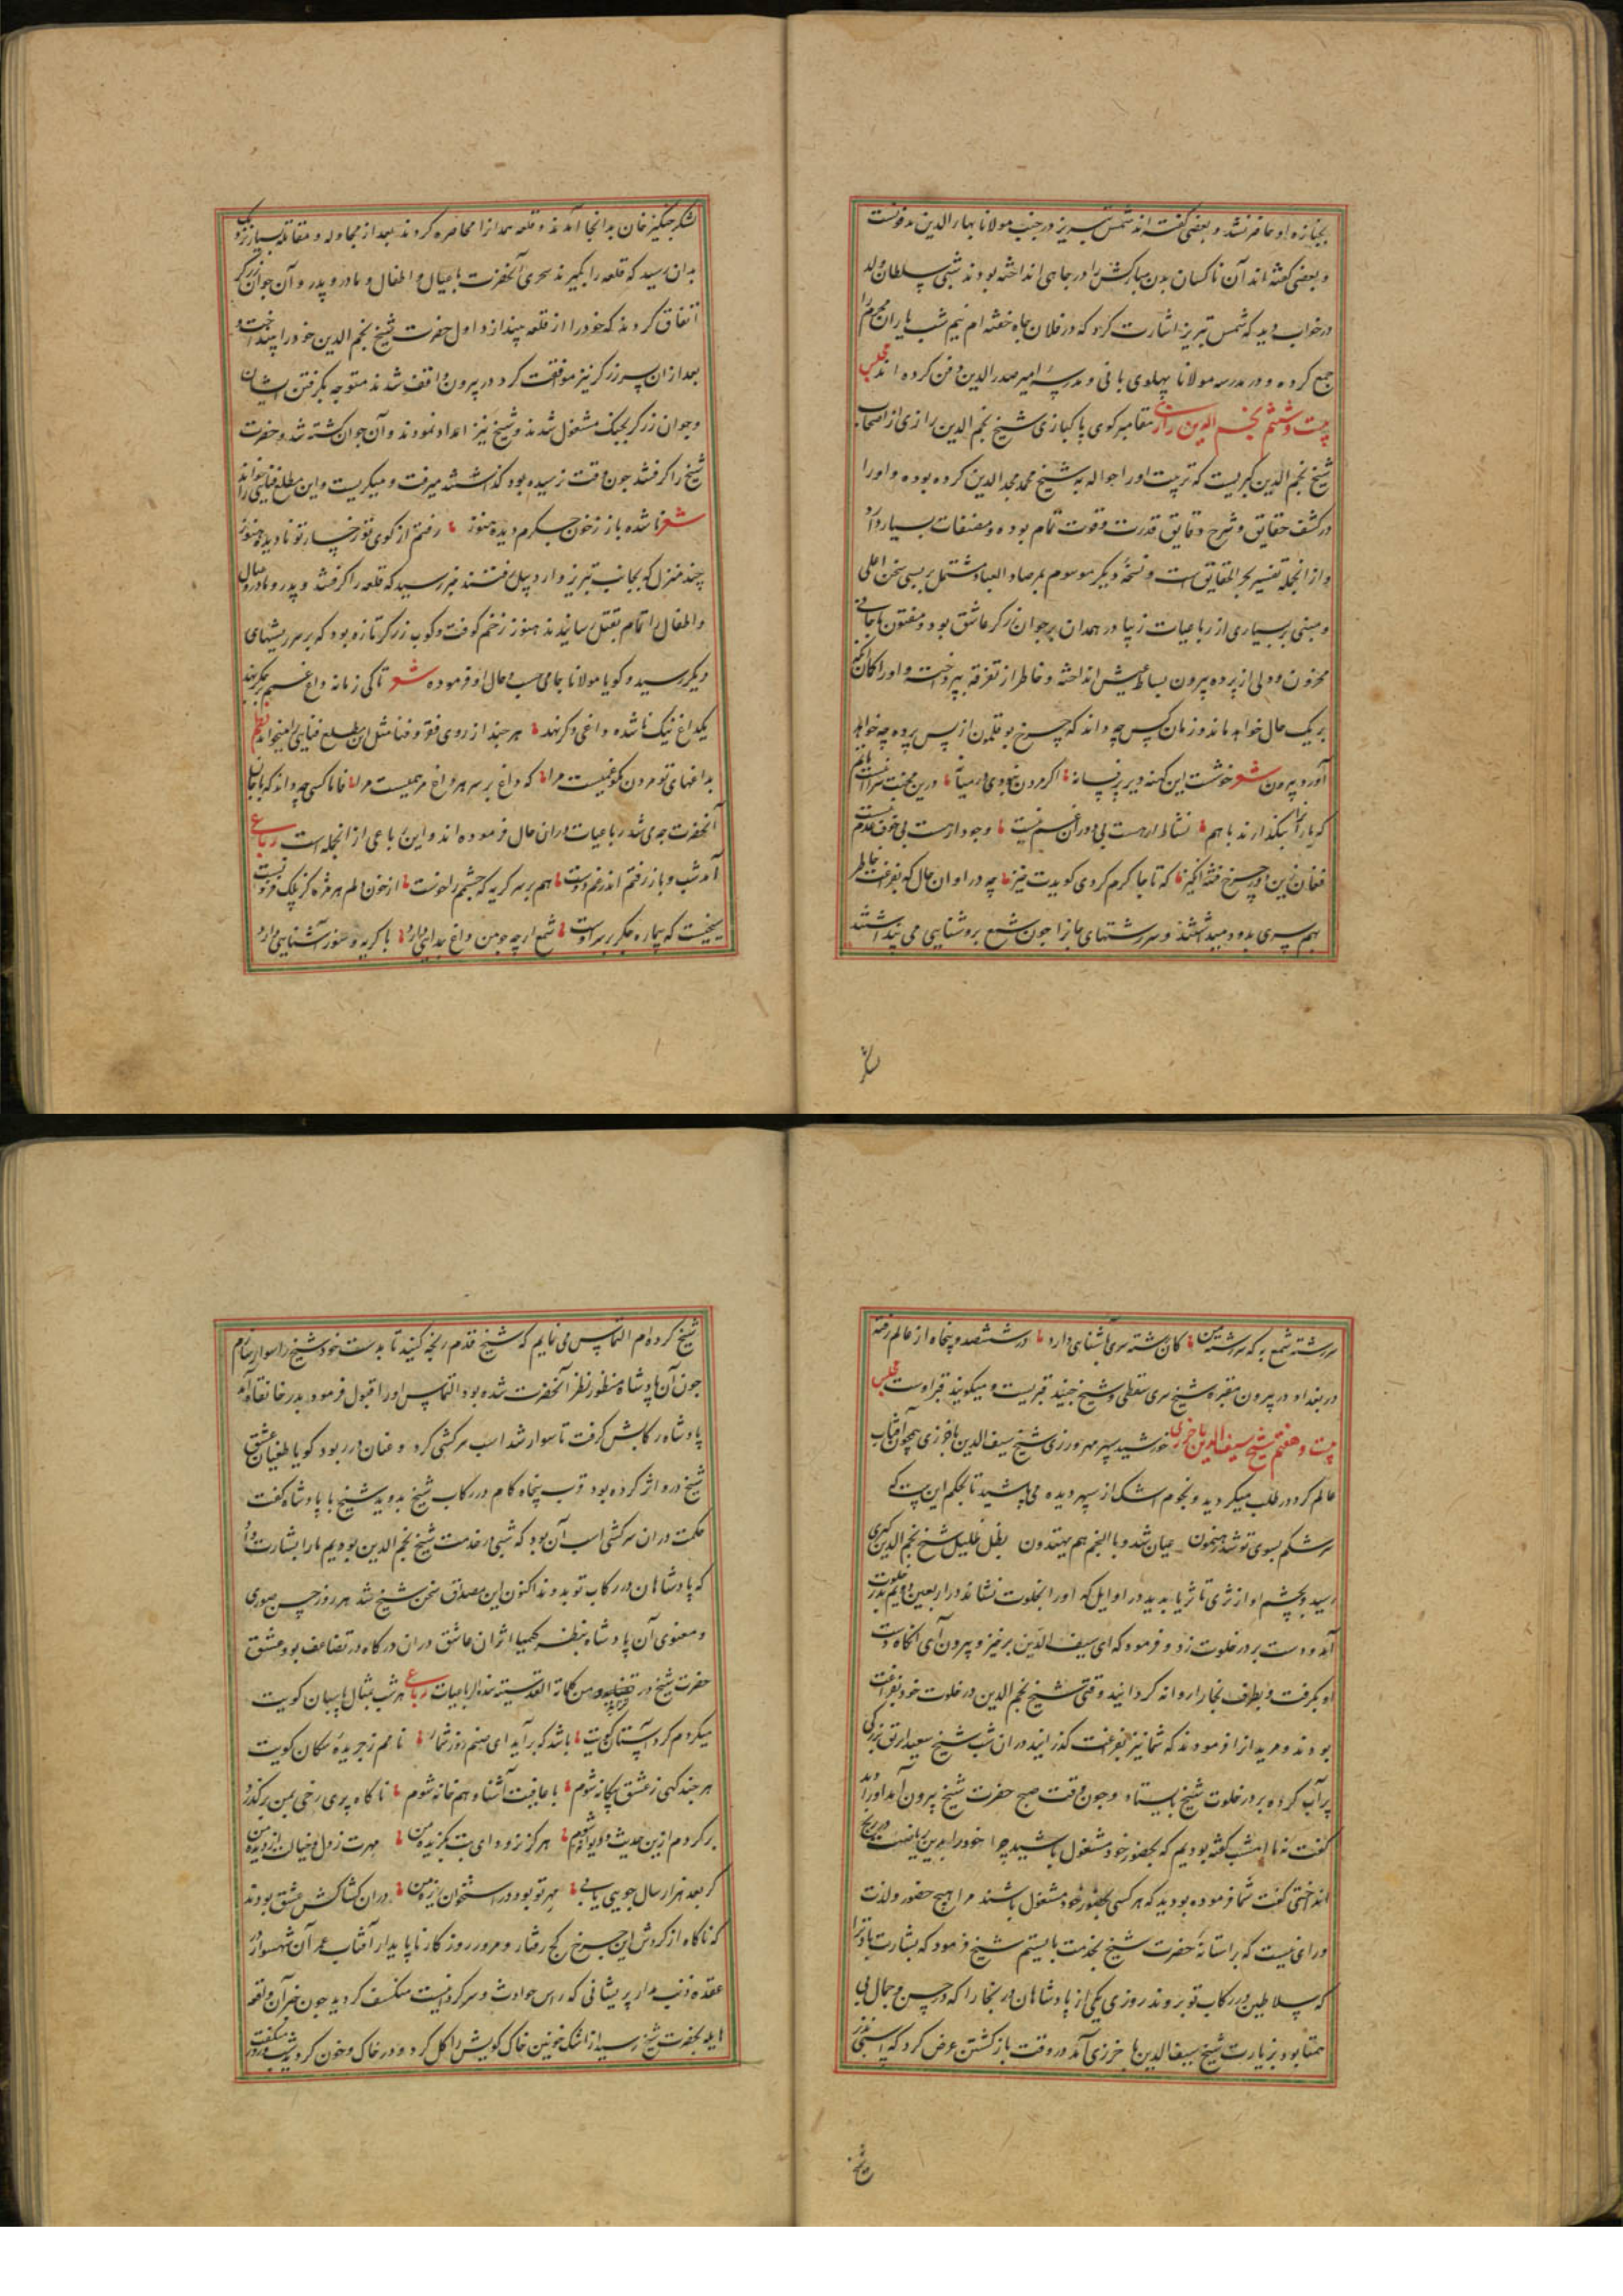 بجنازه او حاضر نشد و بعضی گفته اند شمس تبریز در جنب مولانا بهاء الدین مدفونست
و بعضی گفته اند آن ناکسان بدن مبارکش را در چاهی انداخته بودند شبی سلطان ولد
در خواب دید که شمس تبریز اشارت کرد که در فلان چاه خفته ام نیم شب یاران محرم را
جمع کرده و در مدرسه مولانا پهلوی بانی مدرسه امیر صدر الدین دفن کرده اند مجلس
بیست و ششم نجم الدین رازی مقامر کوی پاکبازی شیخ نجم الدین رازی از اصحاب
شیخ نجم الدین کبریست که تربیت او را حواله به شیخ محمد مجد الدین کرده بوده و او را
در کشف حقایق و شرح دقایق قدرت و قوت تمام بوده و مصنفات بسیار دارد
و از انجمله تفسیر بحر الحقایق است و نسخهٔ دیگر موسوم بمرصاد العباد مشتمل بر بسی سخن اعلی
و مبنی بر بسیاری از رباعیات زیبا در همدان بر جوان زرگر عاشق بود و مفتون با جانی
محزون و دلی از پرده بیرون بساط عیش انداخته و خاطر از تفرقه بپرداخته و او را گمان آنکه
بر یک حال خواهد ماند و زمان پس چه داند که چرخ بوقلمون از پس پرده چه خواهد
آورد بیرون شعر خوشست این کهنه دیر پر فسانه اگر مردن نبودی در میانه درین محنت سرا
که یاران بگذارند با هم نشاط ار هست بی دوران غم نیست وجود ار هست بی خوف عدم نیست
فغان زین دور چرخ فتنه انگیز که تا جا گرم کردی گویدت خیز چه در اوان حال که بفراغت خاطر
بهم سری بدو دمید اشتند و سررشتهای جانرا چون شمع بروشنایی می پنداشتند
لشکر
لشکر چنگیز خان بدانجا آمدند و قلعه همدانرا محاصره کردند بعد از مجادله و مقاتله بسیار نزدیک
بدان رسید که قلعه را بگیرند سحری آنحضرت با عیال و اطفال و مادر و پدر و آن جوان زرگر
اتفاق کردند که خود را از قلعه بیندازد اول حضرت شیخ نجم الدین خود را بینداخت و
بعد از ان پسر زرگر نیز موافقت کرد در بیرون واقف شدند متوجه بگرفتن ایشان
و جوان زرگر بجنگ مشغول شدند و شیخ نیز امداد نمودند و آن جوان کشته شد و حضرت
شیخ را گرفتند چون وقت نرسیده بود گذاشتند میرفت و میگریست و این مطلع فنایی را میخواند
شعر ناشده باز ز خون جگرم دیده هنوز رفتم از کوی تو رخسار تو نادیده هنوز
چند منزل که بجانب تبریز و اردبیل رفتند خبر رسید که قلعه را گرفتند و پدر و مادر و عیال
و اطفال را تمام بقتل رسانیدند هنوز زخم کوفت و کوب زرگر تازه بود که بر سر ریشهای
دیگر رسید و گویا مولانا جامی حسب حال او فرموده شعر تا کی زمانه داغ غمم بر جگر نهد
یکداغ نیک ناشده داغی دگر نهد هر چند از روی فقر و فنا مثل این مطلع فنایی را میخواند نظم
بداغهای تو مردن نکو غمیست مرا که داغ بر سر هر داغ مرهمیست مرا فاما کسی چه داند که با حال
آنحضرت چه می شد رباعیات در ان حال فرموده اند و این رباعی از انجمله است رباعی
آمد شب و باز رفتم اندر غم دوست هم بر سر گریه که چشمم را خوست از خون دلم هر مژه کز پلک فرو
سیخیست که پاره جگر بر سر اوست شمع ار چه چو من داغ جدایی دارد با گریه و سوز آشنایی دارد
سررشته شمع به که سررشته من کان رشته سری باشنایی دارد در ششصد و پنجاه از عالم رفته
در بغداد در بیرون مقبره شیخ سری سقطی و شیخ جنید قبریست و میگویند قبر اوست مجلس
بیست و هفتم شیخ سیف الدین باخرزی خورشید سپهر مهرورزی شیخ سیف الدین باخرزی همچون آفتاب
عالم گرد در طلب میگردید و نجوم اشک از سپهر دیده می پاشید تا بحکم این بیت که
سرشکم بسوی تو شد رهنمون عیان شد و بالنجم هم یهتدون بظل ظلیل شیخ نجم الدین کبری
رسید و بچشم او از ثری تا ثریا بدید در اوایل که او را بخلوت نشاندند در اربعین دویم بدر خلوت
آمد و دست بر در خلوت زد و فرمود که ای سیف الدین برخیز و بیرون آی آنگاه دست
او بگرفت و بطرف بخارا روانه گردانید وقتی شیخ نجم الدین در خلوت خود بفراغت
بودند و مریدانرا فرمودند که شما نیز بفراغت گذرانید در ان شب شیخ سعید ابریق بزرگی
پر آب کرده بر در خلوت شیخ بایستاد و چون وقت صبح حضرت شیخ بیرون آمد او را دید
گفت نه ما امشب گفته بودیم که بحضور خود مشغول باشید چرا خود را بدین ریاضت و رنج
انداختی گفت شما فرموده بودید که هر کسی بحضور خود مشغول باشند مرا هیچ حضور و لذت
ورای نیست که بر استانهٔ حضرت شیخ بخدمت بایستم شیخ فرمود که بشارت باد ترا
که سلاطین در رکاب تو بدوند روزی یکی از پادشاهان در بخارا که در حسن و جمال بی
همتا بود بزیارت شیخ سیف الدین باخرزی آمد در وقت باز گشتن عرض کرد که اسبی نذر
شیخ
شیخ کرده ام التماس می نمایم که شیخ قدم رنجه کنید تا بدست خود شیخ را سوار سازم
چون آن پادشاه منظور نظر آنحضرت شده بود التماس او را قبول فرمود بدر خانقاه آمد
پادشاه رکابش گرفت تا سوار شد اسب سرکشی کرد و عنان در ربود گویا طغیان عشق
شیخ در و اثر کرده بود قرب پنجاه گام در رکاب شیخ بدوید شیخ با پادشاه گفت
حکمت در ان سرکشی اسب آن بود که شبی در خدمت شیخ نجم الدین بودیم ما را بشارت داد
که پادشاهان در رکاب تو بدوند اکنون این مصداق سخن شیخ شد هر روز حسن صوری
و معنوی آن پادشاه بنظر کیمیا اثر ان عاشق در ان درگاه در تضاعف بود و عشق
حضرت شیخ در من کلماته القدسیه هذه الرباعیات رباعی هر شب بمثال پاسبان کویت
میگردم گرد آستان کویت باشد که بر آید ای صنم روز شمار نامم ز جریدهٔ سگان کویت
هر چند گهی ز عشق بیگانه شوم با عافیت آشنا و هم خانه شوم ناگاه پری رخی بمن بر گذرد
بر گردم ازین حدیث و دیوانه شوم هرگز نرود ای بت بگزیده من مهرت ز دل و خیالت از دیده من
گر بعد هزار سال جویی یابی مهر تو بود در استخوان ریزه من در ان کشاکش عشق بودند
که ناگاه از گردش این چرخ کج رفتار و مرور روزگار ناپایدار آفتاب عمر آن شهسوار
عقده ذنب مدار پریشانی که راس حوادث و سرگردانیست منکسف گردید چون خبر آن واقعه
هایله بحضرت شیخ رسید از اشک خونین خاک کویش را گل کرد و در خاک و خون گردید